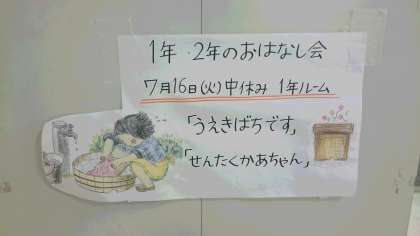 1年・2年のおはなし会
7月16日(火)中休み 1年ルーム
「うえきばちです」
「せんたくかあちゃん」